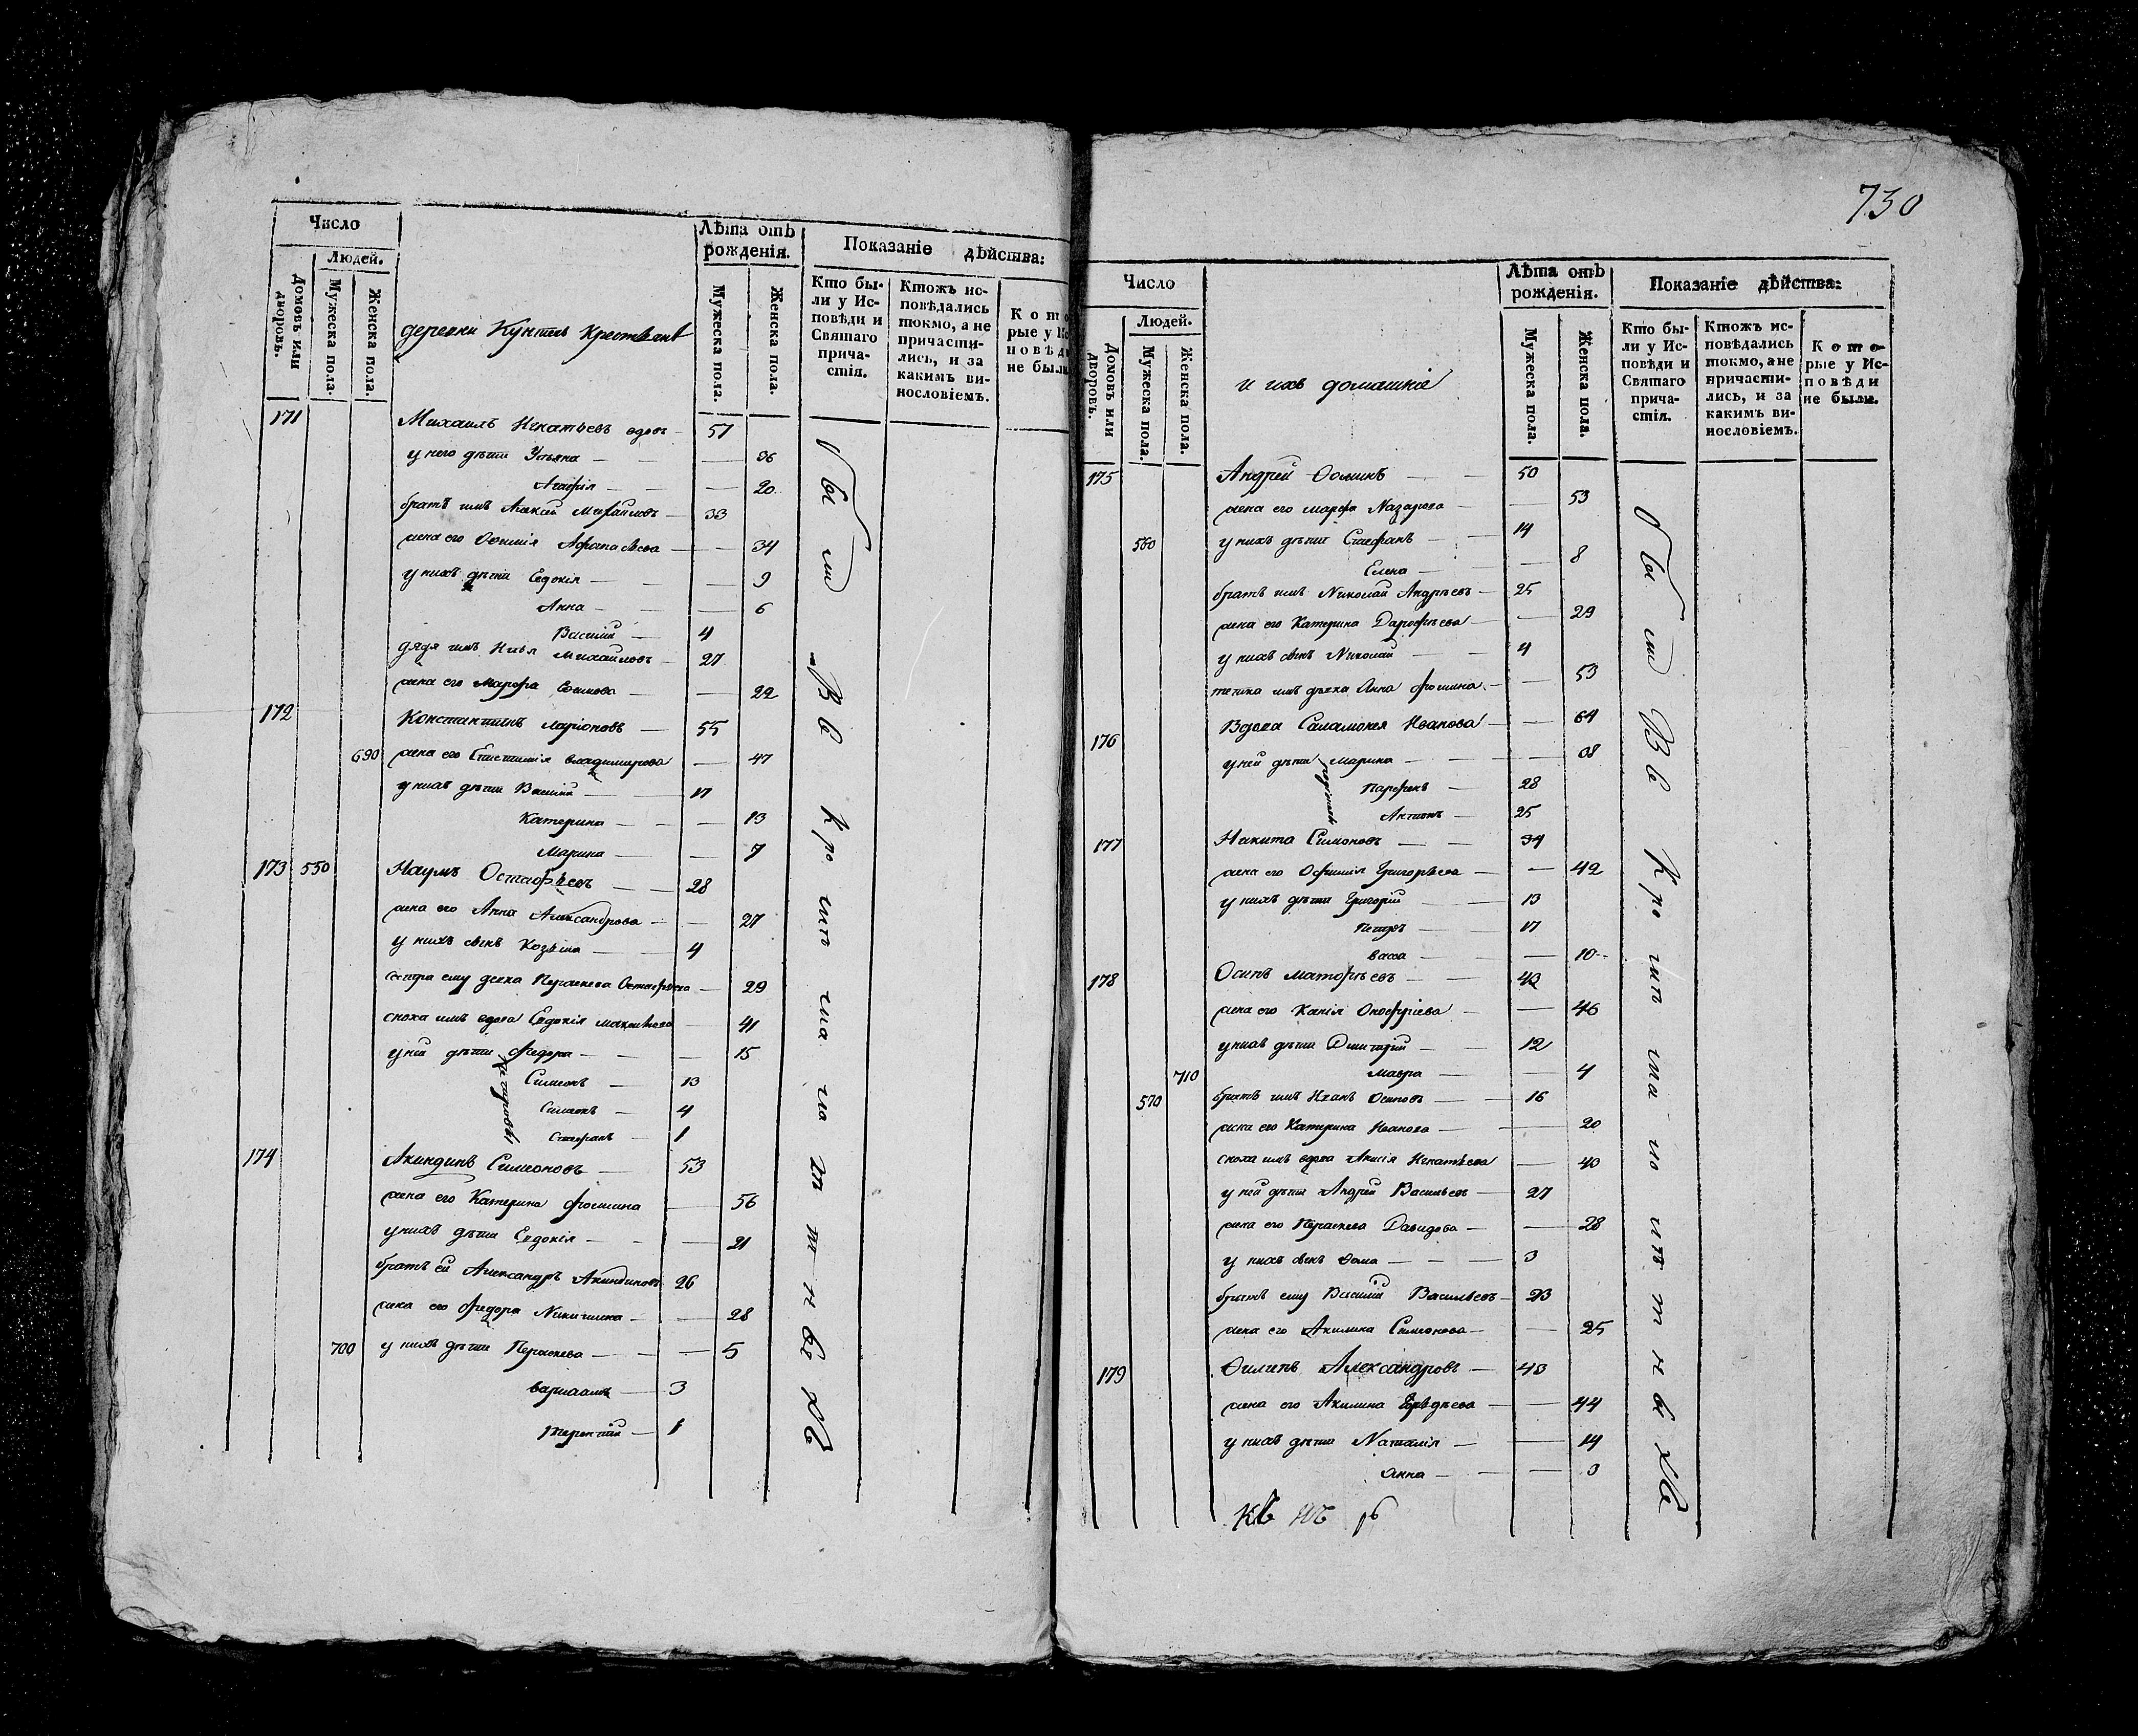 Число
Людей.
Домовъ или дворовъ.
Мужеска пола.
Женска пола.
деревни
Лѣта отъ рожденія.
Мужеска пола.
Женска пола.
Показаніе дѣйства:
Кто были у Исповѣди и Святаго причастія.
Ктожъ исповѣдались токмо, а не причастились, и за какимъ винословіемъ.
Которые у Исповѣди не были.
171 Михаилъ Игнатьевъ вдовъ — 57
у него дѣти Ульяна — — — 36
Агафія — — 20
братъ имъ Михайловъ — 33
жена его Афанасьева — — 34
у нихъ дѣти Евдокія — — — 9
Анна — — — 6
Василій — 4
дядя имъ Илья Михайловъ — 27
жена его Марфа — — 22
172 Константинъ Ларіоновъ — 55
690 жена его Владимирова — 47
у нихъ дѣти Василій — — 17
Катерина — — — 13
Марина — — 7
173 550 Наумъ Остафьевъ — — 28
жена его Анна Александрова — — 27
у нихъ сынъ Козьма — — 4
сестра ему девка Пераскева Остафьева — 29
сноха имъ вдова Евдокія — 41
у ней дѣти Федора — — — 15
Петровы
Симеонъ — 13
Симеонъ — 4
Стефанъ — 1
174 Акиндинъ Симеоновъ — 53
жена его Катерина Фомина — 56
у нихъ дѣти Евдокія — — — 21
братъ ей Александръ Акиндиновъ 26
жена его Федора Никитина — — 28
700 у нихъ дѣти Пераскева — — — 5
Варлаамъ — 3
Терентий — 1
Были
Всѣ
730
Число
Людей.
Домовъ или дворовъ.
Мужеска пола.
Женска пола.
и ихъ домашніе
Лѣта отъ рожденія.
Мужеска пола.
Женска пола.
Показаніе дѣйства:
Кто были у Исповѣди и Святаго причастія.
Ктожъ исповѣдались токмо, а не причастились, и за какимъ винословіемъ.
Которые у Исповѣди не были.
175 Андрей Ѳоминъ — — 50
жена его Марфа Назарова — — 53
560 у нихъ дѣти Стефанъ — — 14
Елена — — — 8
братъ имъ Николай Андрѣевъ — 25
жена его Катерина Дарофѣева — — 29
у нихъ сынъ Николай — — 4
тетка имъ дѣвка Анна Фомина — — 53
176 Вдова Саламонея Иванова — — 64
у ней дѣти Марина — — — 38
Парфенъ — 28
Антонъ — 25
177 Никита Симоновъ — — 34
жена его Офимія Григорьева — — 42
у нихъ дѣти Григорій — — 13
Петръ — — 17
Васса — — 10
178 Осипъ Матофѣевъ — — 43
жена его Онофріева — — 46
у нихъ дѣти Дмитрій — — 12
710 Мавра — — — 4
570 братъ имъ Иванъ Осиповъ — — 16
жена его Катерина Иванова — — 20
сноха имъ вдова Анисія Игнатьева — 40
у ней дѣти Андрей Васильевъ — 27
жена его Пераскева Давидова — — 28
у нихъ сынъ Ѳома — — — 3
братъ ему Василій Васильевъ — 23
жена его Акилина Симеонова — — 25
179 Филипъ Александровъ — 43
жена его Акилина — — 44
у нихъ дѣти Наталія — — 14
Анна — — — 3
Были
Всѣ